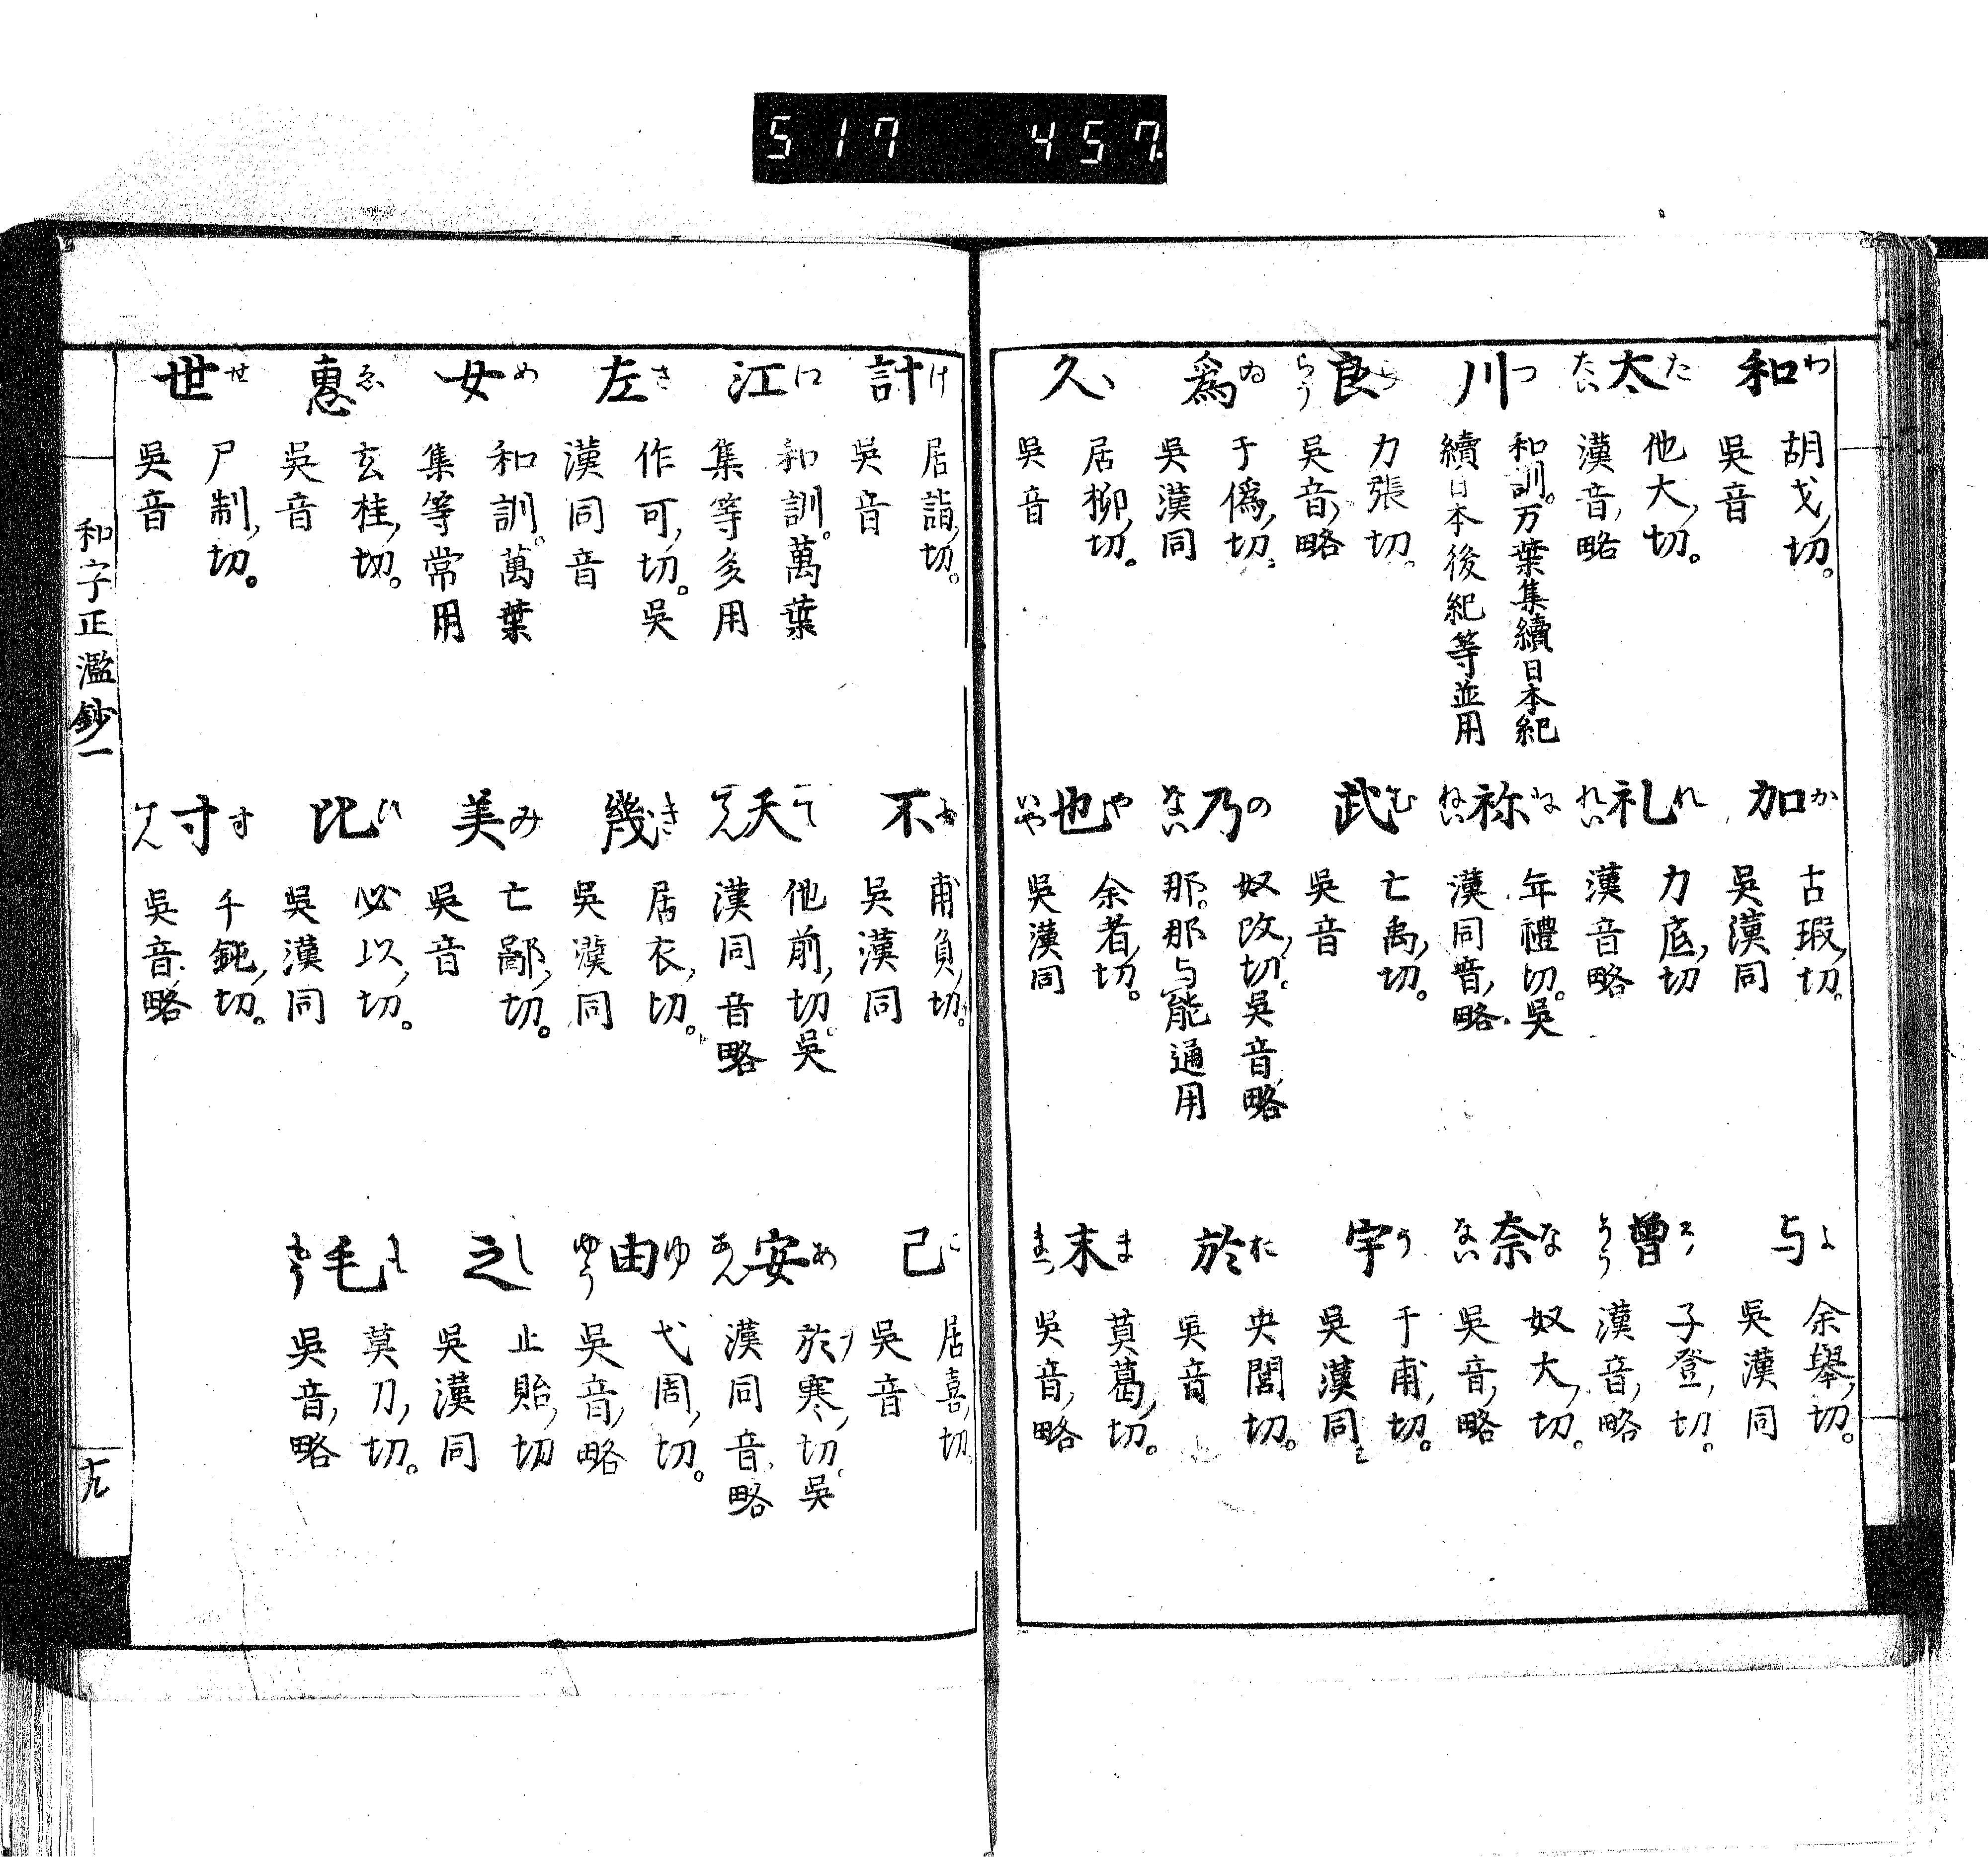 517 457
和 わ
胡戈切。
吳音
加 か
古瑕切。
吳漢同
与 よ
余舉切。
吳漢同
太 た たい
他大切。
漢音略
礼 れ れい
力底切
漢音略
曾 そ そう
子登切。
漢音略
川 つ
和訓。万葉集續日本紀
續日本後紀等並用
祢 ね ねい
年禮切。吳
漢同音略
奈 な ない
奴大切。
吳音略
良 ら らう
力張切。
吳音略
武 む
亡禹切。
吳音
宇 う
于甫切。
吳漢同
爲 ゐ
于僞切。
吳漢同
乃 の ない
奴改切。吳音略
那。那与能通用
於 お
央閭切。
吳音
久 く
居柳切。
吳音
也 や いや
余者切。
吳漢同
末 ま まつ
莫葛切。
吳音略
計 け
居詣切。
吳音
不 ふ
甫負切。
吳漢同
己 こ
居喜切
吳音
江 え
和訓。萬葉
集等多用
天 て てん
他前切。吳
漢同音略
安 あ あん
於寒切。吳
漢同音略
左 さ
作可切。吳
漢同音
幾 き
居衣切。
吳漢同
由 ゆ ゆう
弋周切。
吳音略
女 め
和訓。萬葉
集等常用
美 み
亡鄙切。
吳音
之 し
止貽切
吳漢同
惠 ゑ
玄桂切。
吳音
比 ひ
必以切。
吳漢同
毛 も もう
莫刀切。
吳音略
世 せ
尸制切。
吳音
寸 す すん
千鈍切。
吳音略
和字正濫鈔一
十九